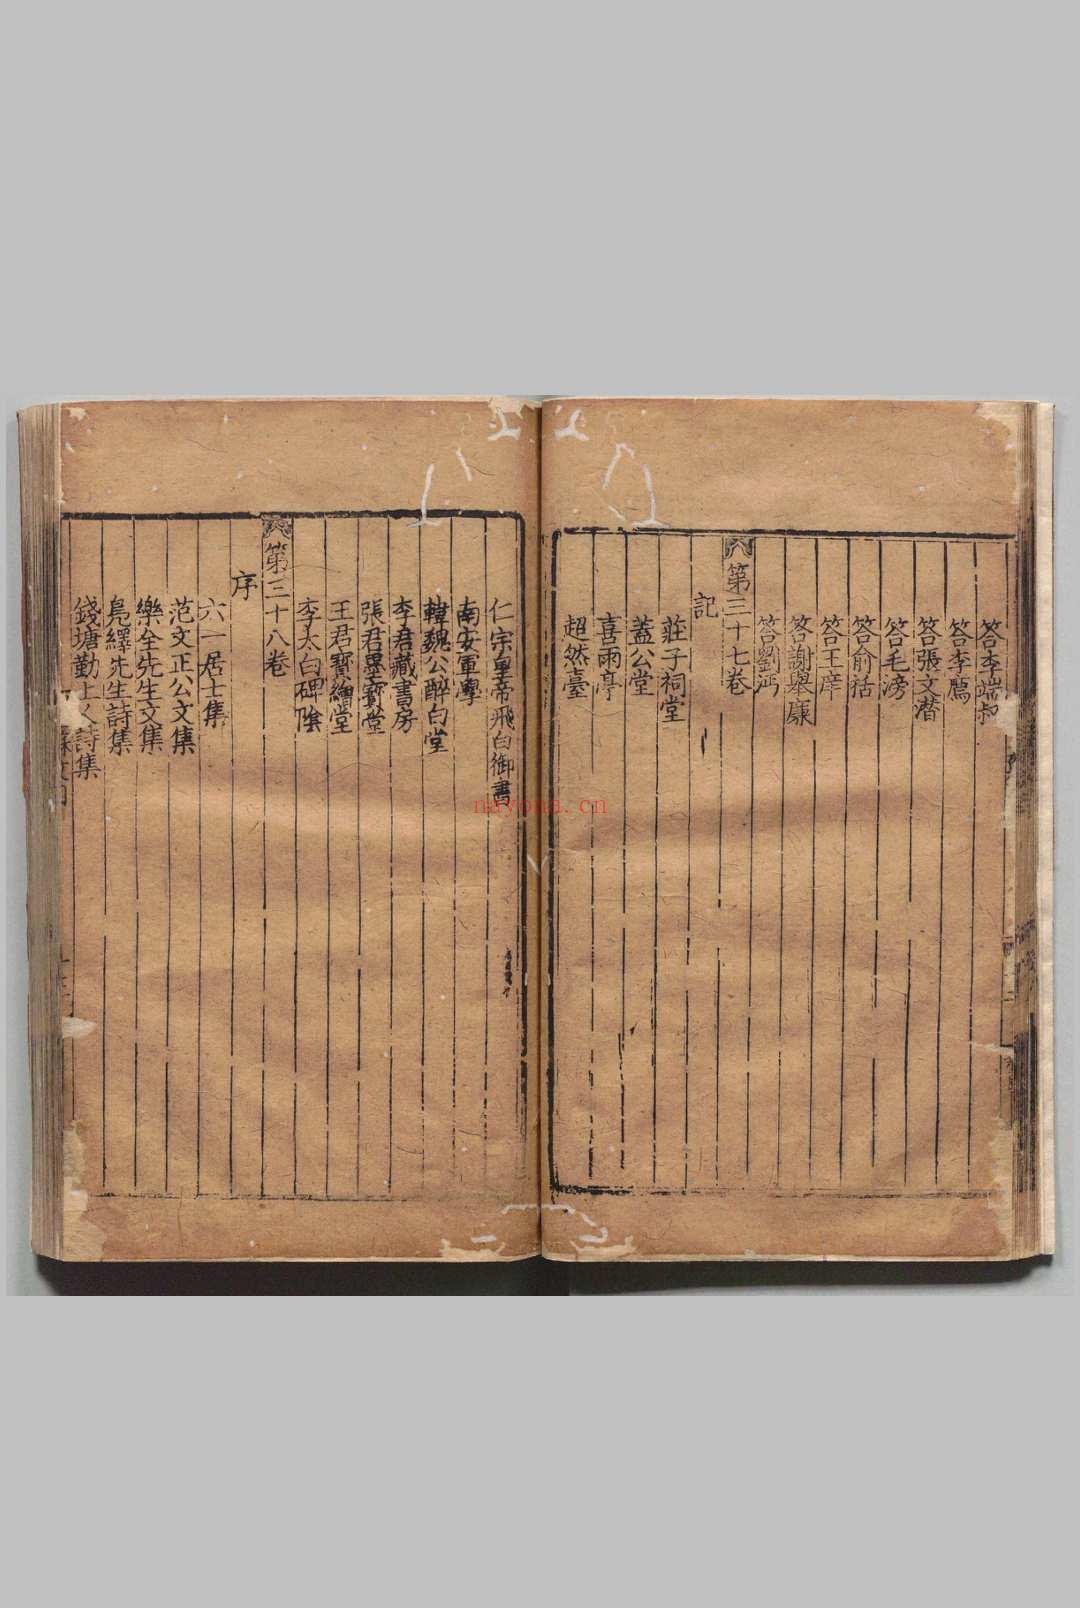 答李端叔
答李廌
答張文潜
答毛滂
答俞括
答王庠
答謝舉廉
答劉沔
第三十七卷
記
莊子祠堂
蓋公堂
喜雨亭
超然臺
仁宗皇帝飛白御書
南安軍學
韓魏公醉白堂
李君藏書房
張君墨寳堂
王君寳繪堂
李太白碑陰
第三十八卷
序
六一居士集
范文正公文集
樂全先生文集
鳬繹先生詩集
錢塘勤上人詩集
nayona.cn